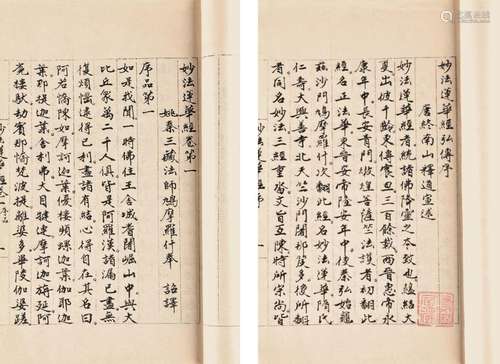 妙法蓮華經弘傳序
唐終南山釋道宣述
妙法蓮華經者統諸佛降靈之本致也蘊結大
夏出彼千齡東傳震旦三百餘載西晉惠帝永
康年中長安青門燉煌菩薩竺法護者初翻此
經名正法華東晉安帝隆安年中後秦弘始龜
茲沙門鳩摩羅什次翻此經名妙法蓮華隋氏
仁壽大興善寺北天竺沙門闍那笈多後所翻
者同名妙法三經重沓文旨互陳時所宗尚皆
妙法蓮華經卷第一
姚秦三藏法師鳩摩羅什奉 詔譯
序品第一
如是我聞一時佛住王舍城耆闍崛山中與大
比丘眾萬二千人俱皆是阿羅漢諸漏已盡無
復煩惱逮得己利盡諸有結心得自在其名曰
阿若憍陳如摩訶迦葉優樓頻螺迦葉伽耶迦
葉那提迦葉舍利弗大目犍連摩訶迦旃延阿
㝹樓馱劫賓那憍梵波提離婆多畢陵伽婆蹉